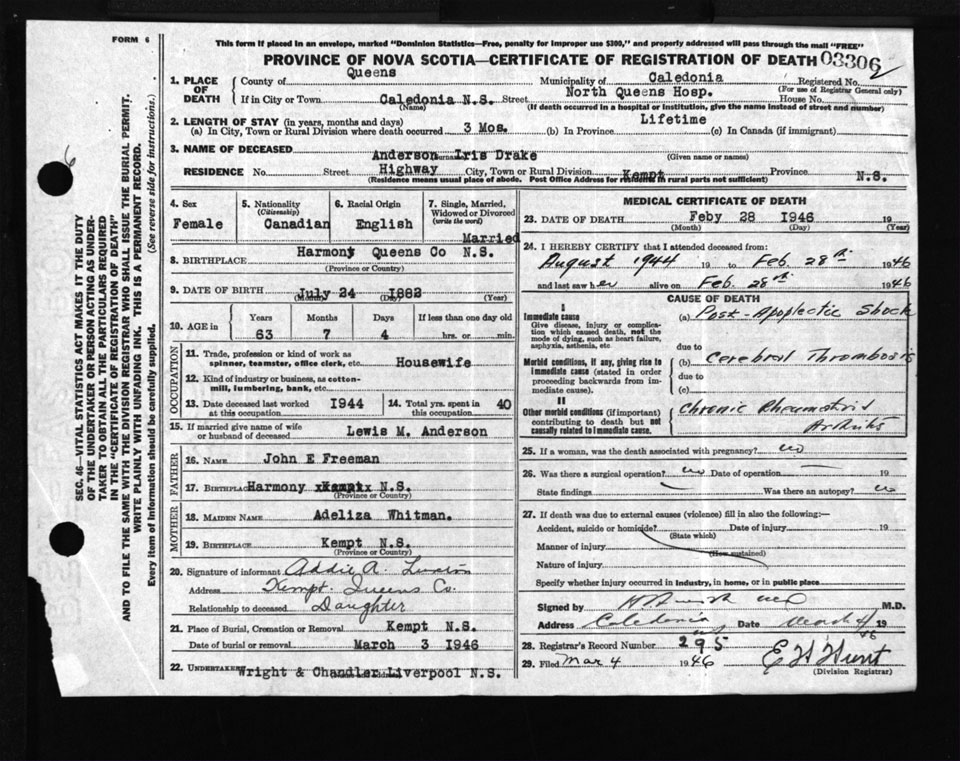 FORM 6
This form if placed in an envelope, marked "Dominion Statistics—Free, penalty for improper use $300," and properly addressed will pass through the mail "FREE"
PROVINCE OF NOVA SCOTIA—CERTIFICATE OF REGISTRATION OF DEATH 03306
1. PLACE OF DEATH
County of Queens Municipality of Caledonia Registered No.
(For use of Registrar General only)
If in City or Town Caledonia N.S. Street North Queens Hosp. House No.
(Name) (If death occurred in a hospital or institution, give the name instead of street and number)
2. LENGTH OF STAY (in years, months and days)
(a) In City, Town or Rural Division where death occurred 3 Mos. (b) In Province Lifetime (c) In Canada (if immigrant)
3. NAME OF DECEASED Anderson Iris Drake
(Given name or names)
RESIDENCE No. Street Highway City, Town or Rural Division Kempt Province N.S.
(Residence means usual place of abode. Post Office Address for residents in rural parts not sufficient)
4. Sex Female
5. Nationality (Citizenship) Canadian
6. Racial Origin English
7. Single, Married, Widowed or Divorced (write the word) Married
8. BIRTHPLACE Harmony Queens Co N.S.
(Province or County)
9. DATE OF BIRTH July 24 1882
(Month) (Day) (Year)
10. AGE in Years Months Days If less than one day old
63 7 4 hrs. or min.
OCCUPATION
11. Trade, profession or kind of work as spinner, teamster, office clerk, etc. Housewife
12. Kind of industry or business, as cotton-mill, lumbering, bank, etc.
13. Date deceased last worked at this occupation 1944
14. Total yrs. spent in this occupation 40
15. If married give name of wife or husband of deceased Lewis M. Anderson
FATHER
16. NAME John E Freeman
17. BIRTHPLACE Harmony Kempt N.S.
(Province or County)
MOTHER
18. MAIDEN NAME Adeliza Whitman.
19. BIRTHPLACE Kempt N.S.
(Province or County)
20. Signature of informant Addie A.
Address Kempt. Queens Co.
Relationship to deceased Daughter
21. Place of Burial, Cremation or Removal Kempt N.S.
Date of burial or removal March 3 1946
22. UNDERTAKER Wright & Chandler Liverpool N.S.
MEDICAL CERTIFICATE OF DEATH
23. DATE OF DEATH Feby 28 1946 19
(Month) (Day) (Year)
24. I HEREBY CERTIFY that I attended deceased from:
August 1944 19 to Feb. 28th 1946
and last saw her alive on Feb. 28th 1946
CAUSE OF DEATH
I
Immediate cause
Give disease, injury or complication which caused death, not the mode of dying, such as heart failure, asphyxia, asthenia, etc.
(a) Post-Apoplectic Shock
due to
Morbid conditions, if any, giving rise to immediate cause (stated in order proceeding backwards from immediate cause).
(b) Cerebral Thrombosis
due to
(c)
II
Other morbid conditions (if important) contributing to death but not causally related to immediate cause.
Chronic
25. If a woman, was the death associated with pregnancy? no
26. Was there a surgical operation? no Date of operation 19
State findings Was there an autopsy? no
27. If death was due to external causes (violence) fill in also the following:—
Accident, suicide or homicide? Date of injury 19
(State which)
Manner of injury
(How sustained)
Nature of injury
Specify whether injury occurred in industry, in home, or in public place
Signed by M.D.
Address Caledonia Date March 4 1946
28. Registrar's Record Number 295
29. Filed Mar 4 1946 E H Hunt
(Division Registrar)
SEC. 46—VITAL STATISTICS ACT MAKES IT THE DUTY
OF THE UNDERTAKER OR PERSON ACTING AS UNDER-
TAKER "TO OBTAIN ALL THE PARTICULARS REQUIRED
IN THE "CERTIFICATE OF REGISTRATION OF DEATH"
AND TO FILE THE SAME WITH THE DIVISION REGISTRAR WHO SHALL ISSUE THE BURIAL PERMIT.
WRITE PLAINLY WITH UNFADING INK. THIS IS A PERMANENT RECORD.
Every item of Information should be carefully supplied. (See reverse side for instructions.)